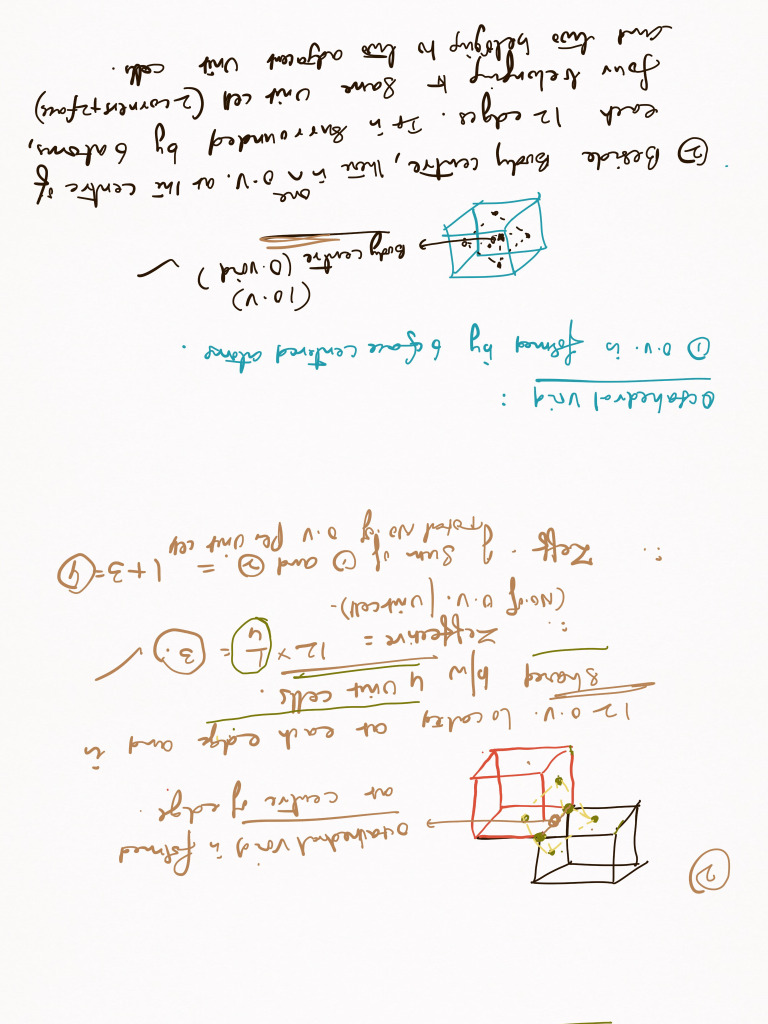 ②
Octahedral void is formed
at centre of edge
12 O.V. locate at each edge and is
shared b/w 4 unit cells.
∴ Zeffective = 12 × 1/4 = 3.
(No. of O.V. / unit cell)-
∴ Zeff. of sum of ① and ② = 1+3=4
total No. of O.V per unit cell
Octahedral void :
① O.V. is formed by 6 face centered atoms.
(1 O.V)
Body centre (O.void)
② Beside Body centre, there is one O.V. at the centre of
each 12 edges. It is surrounded by 6 atoms,
four belonging to same unit cell (2 corners + 2 face)
and two belongs to two adjacent unit cells.